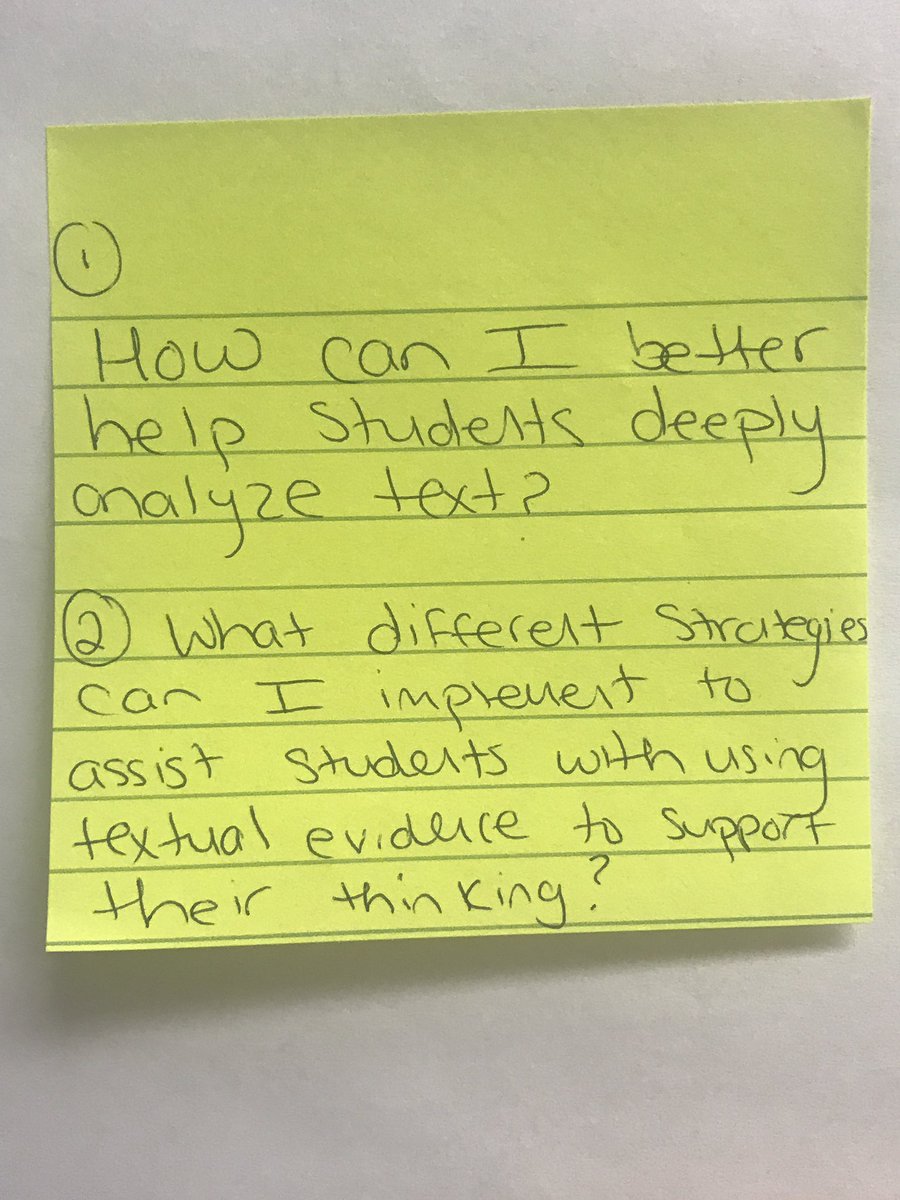 ①
How can I better
help students deeply
analyze text?
② What different strategies
can I implement to
assist students with using
textual evidence to support
their thinking?